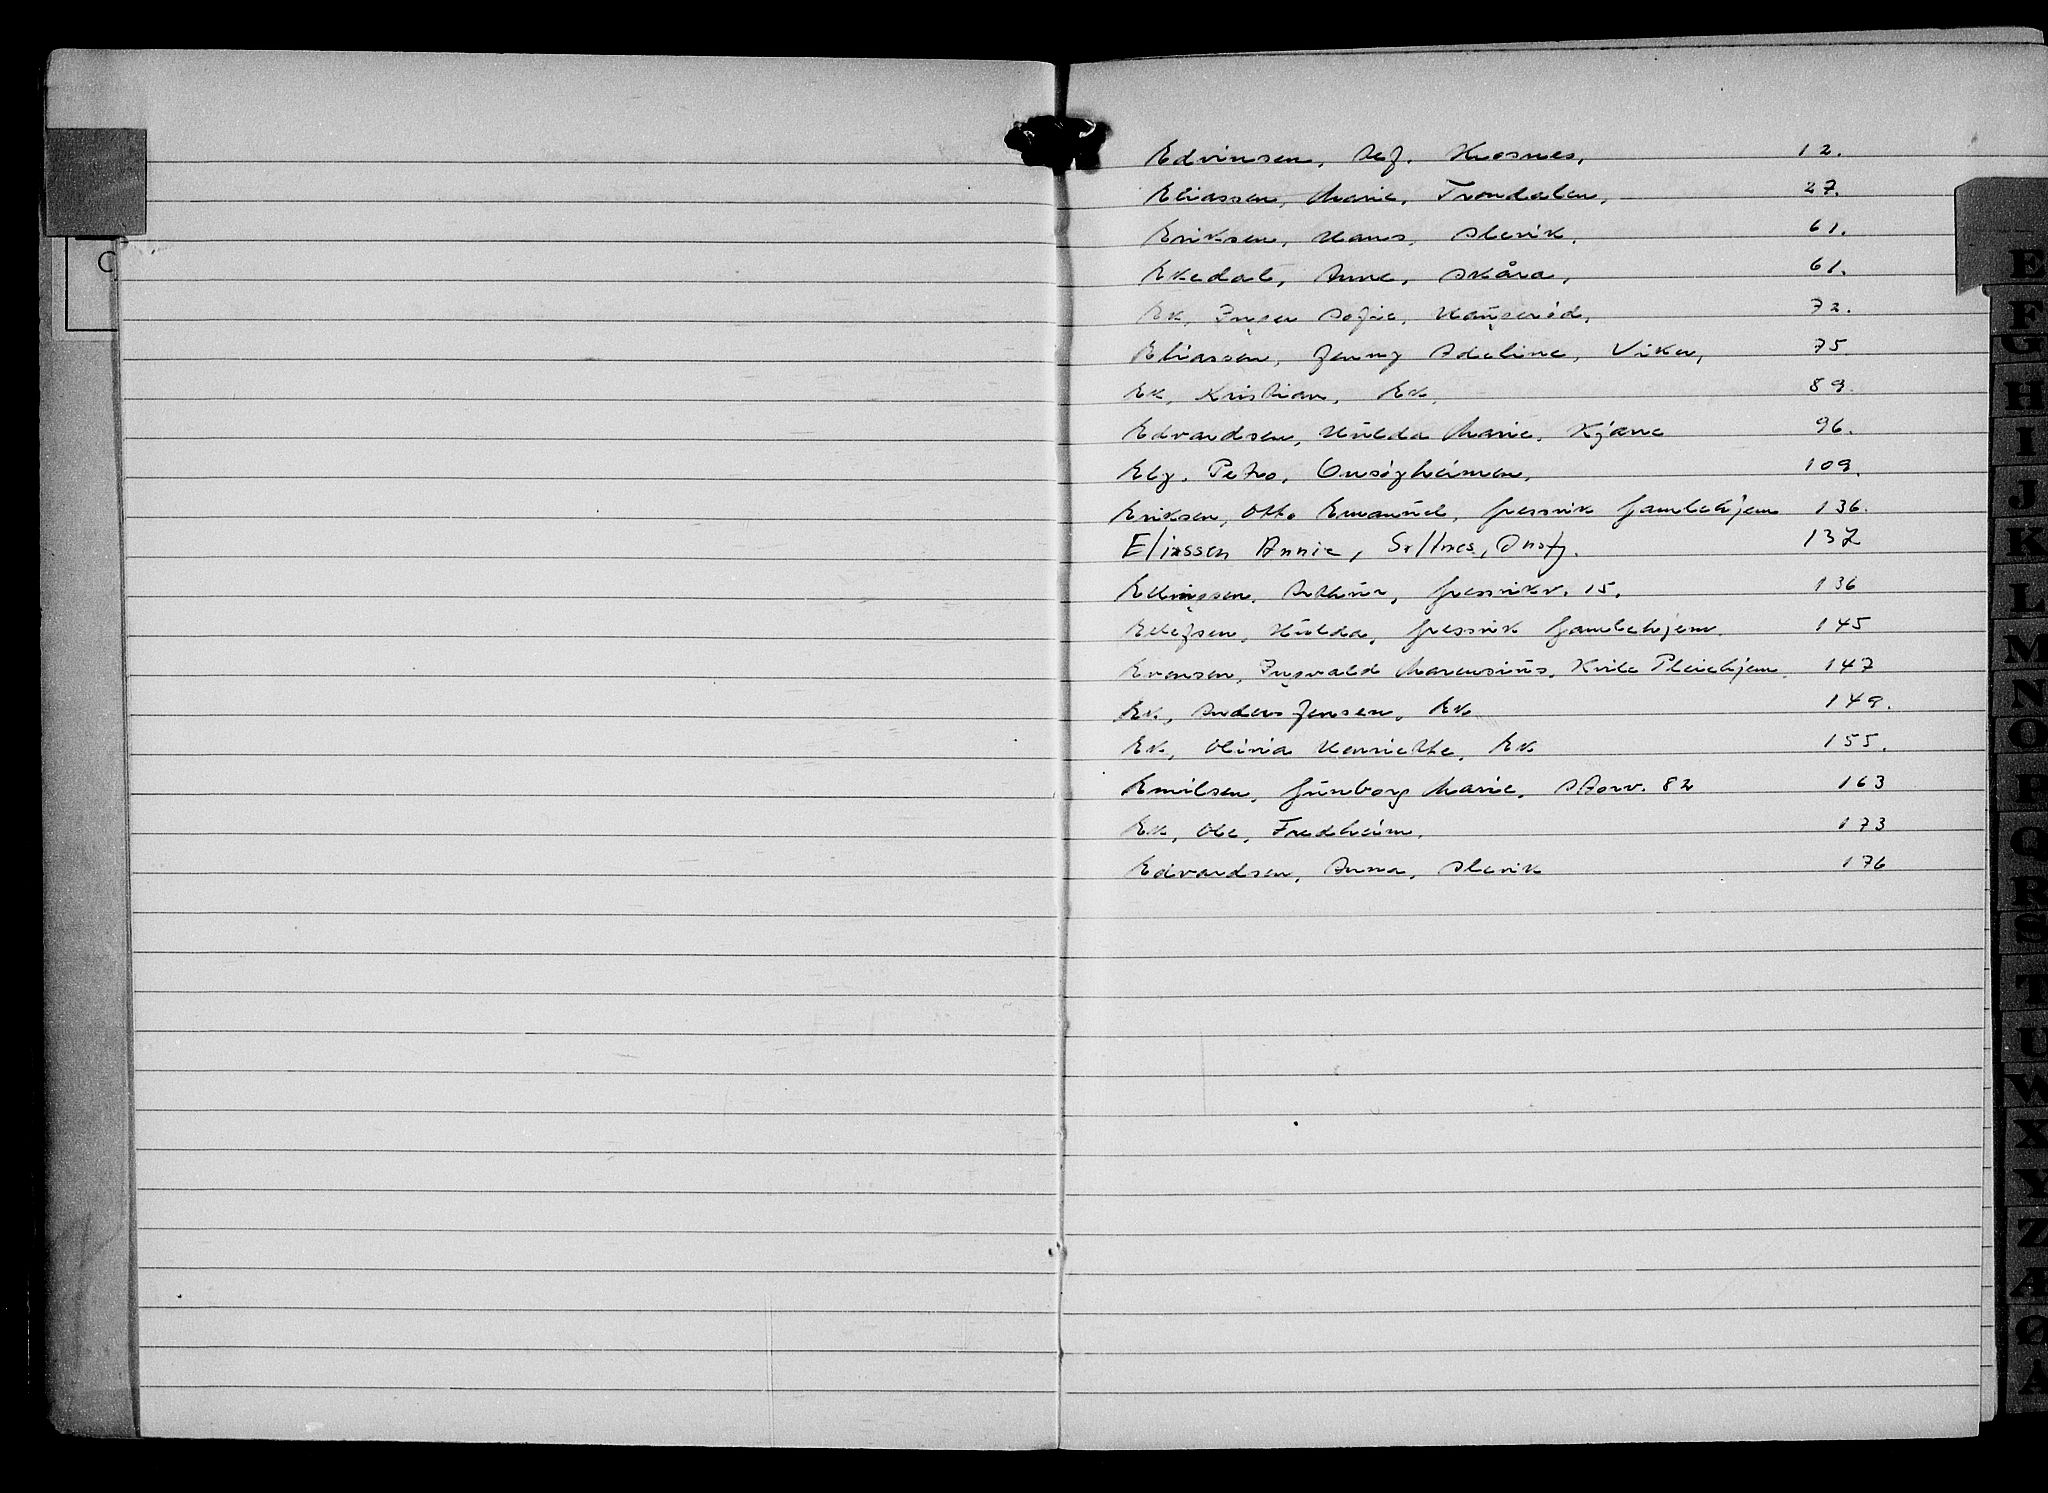 Edvinsen, Alf. Krosnes, 12.
Eliassen, Marie, Trondalen, 27.
Eriksen, Hans, Slevik. 61.
Ekedal, Anne, Skåra, 61.
Ek, Inger Sofie, Haugerød, 72.
Eliassen, Jenny Adeline, Viker, 75.
Ek, Kristian, Ek. 89.
Edvardsen, Hulda Marie. Kjære 96.
Elg. Petra, Onsøyheimen. 109.
Eriksen, Otto Emanuel, Gressvik Gamlehjem 136.
Eliassen Annie, Slltnes, Onsøy. 137
Ellingsen. Arthur, Gressvikv. 15. 136
Ellefsen, Hulda, Gressvik Gamlehjem. 145
Evensen, Ingvald Marensius. Kvile Pleiehjem. 147
Ek, Anders Jensen, Ek 149.
Ek, Olivia Henriette, Ek 155.
Emilsen, Gunborg Marie, Storv. 82 163
Ek, Ole, Fredheim. 173
Edvardsen, Anna, Slevik 176
C
E
F
G
H
I
J
K
L
M
N
O
P
Q
R
S
T
U
W
X
Y
Z
Æ
Ø
Å